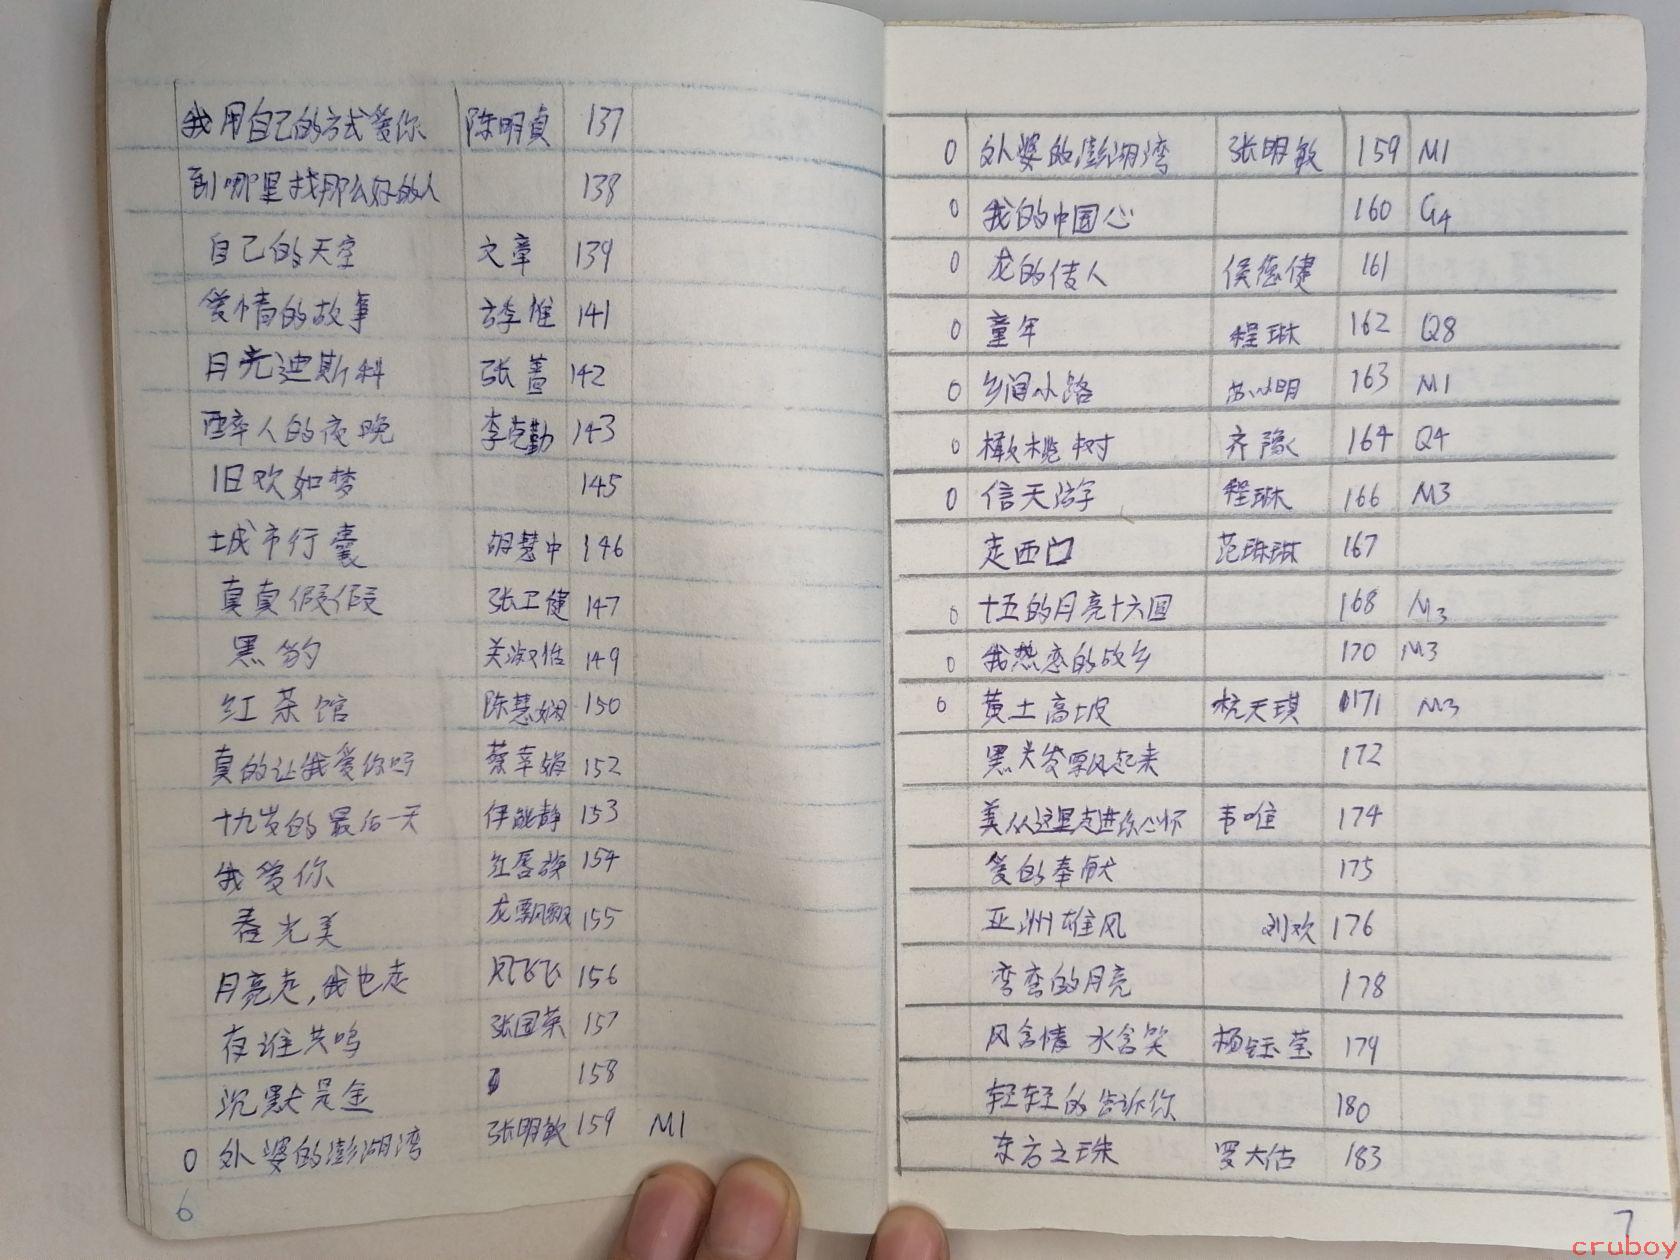 我用自己的方式爱你 陈明贞 137
到哪里找那么好的人 138
自己的天空 文章 139
爱情的故事 方季惟 141
月光迪斯科 张蔷 142
醉人的夜晚 李克勤 143
旧欢如梦 145
城市行囊 胡慧中 146
真真假假 张卫健 147
黑豹 关淑怡 149
红茶馆 陈慧娴 150
真的让我爱你吗 蔡幸娟 152
十九岁的最后一天 伊能静 153
我爱你 红唇族 154
春光美 龙飘飘 155
月亮走,我也走 凤飞飞 156
夜谁共鸣 张国荣 157
沉默是金 158
0 外婆的澎湖湾 张明敏 159 M1
6
0 外婆的澎湖湾 张明敏 159 M1
0 我的中国心 160 G4
0 龙的传人 侯德健 161
0 童年 程琳 162 Q8
0 乡间小路 苏小明 163 M1
0 橄榄树 齐豫 164 Q4
0 信天游 程琳 166 M3
走西口 范琳琳 167
0 十五的月亮十六圆 168 M3
0 我热恋的故乡 170 M3
0 黄土高坡 杭天琪 171 M3
黑头发飘起来 172
美从这里走进你心怀 韦唯 174
爱的奉献 175
亚洲雄风 刘欢 176
弯弯的月亮 178
风含情 水含笑 杨钰莹 179
轻轻的告诉你 180
东方之珠 罗大佑 183
7
cruboy